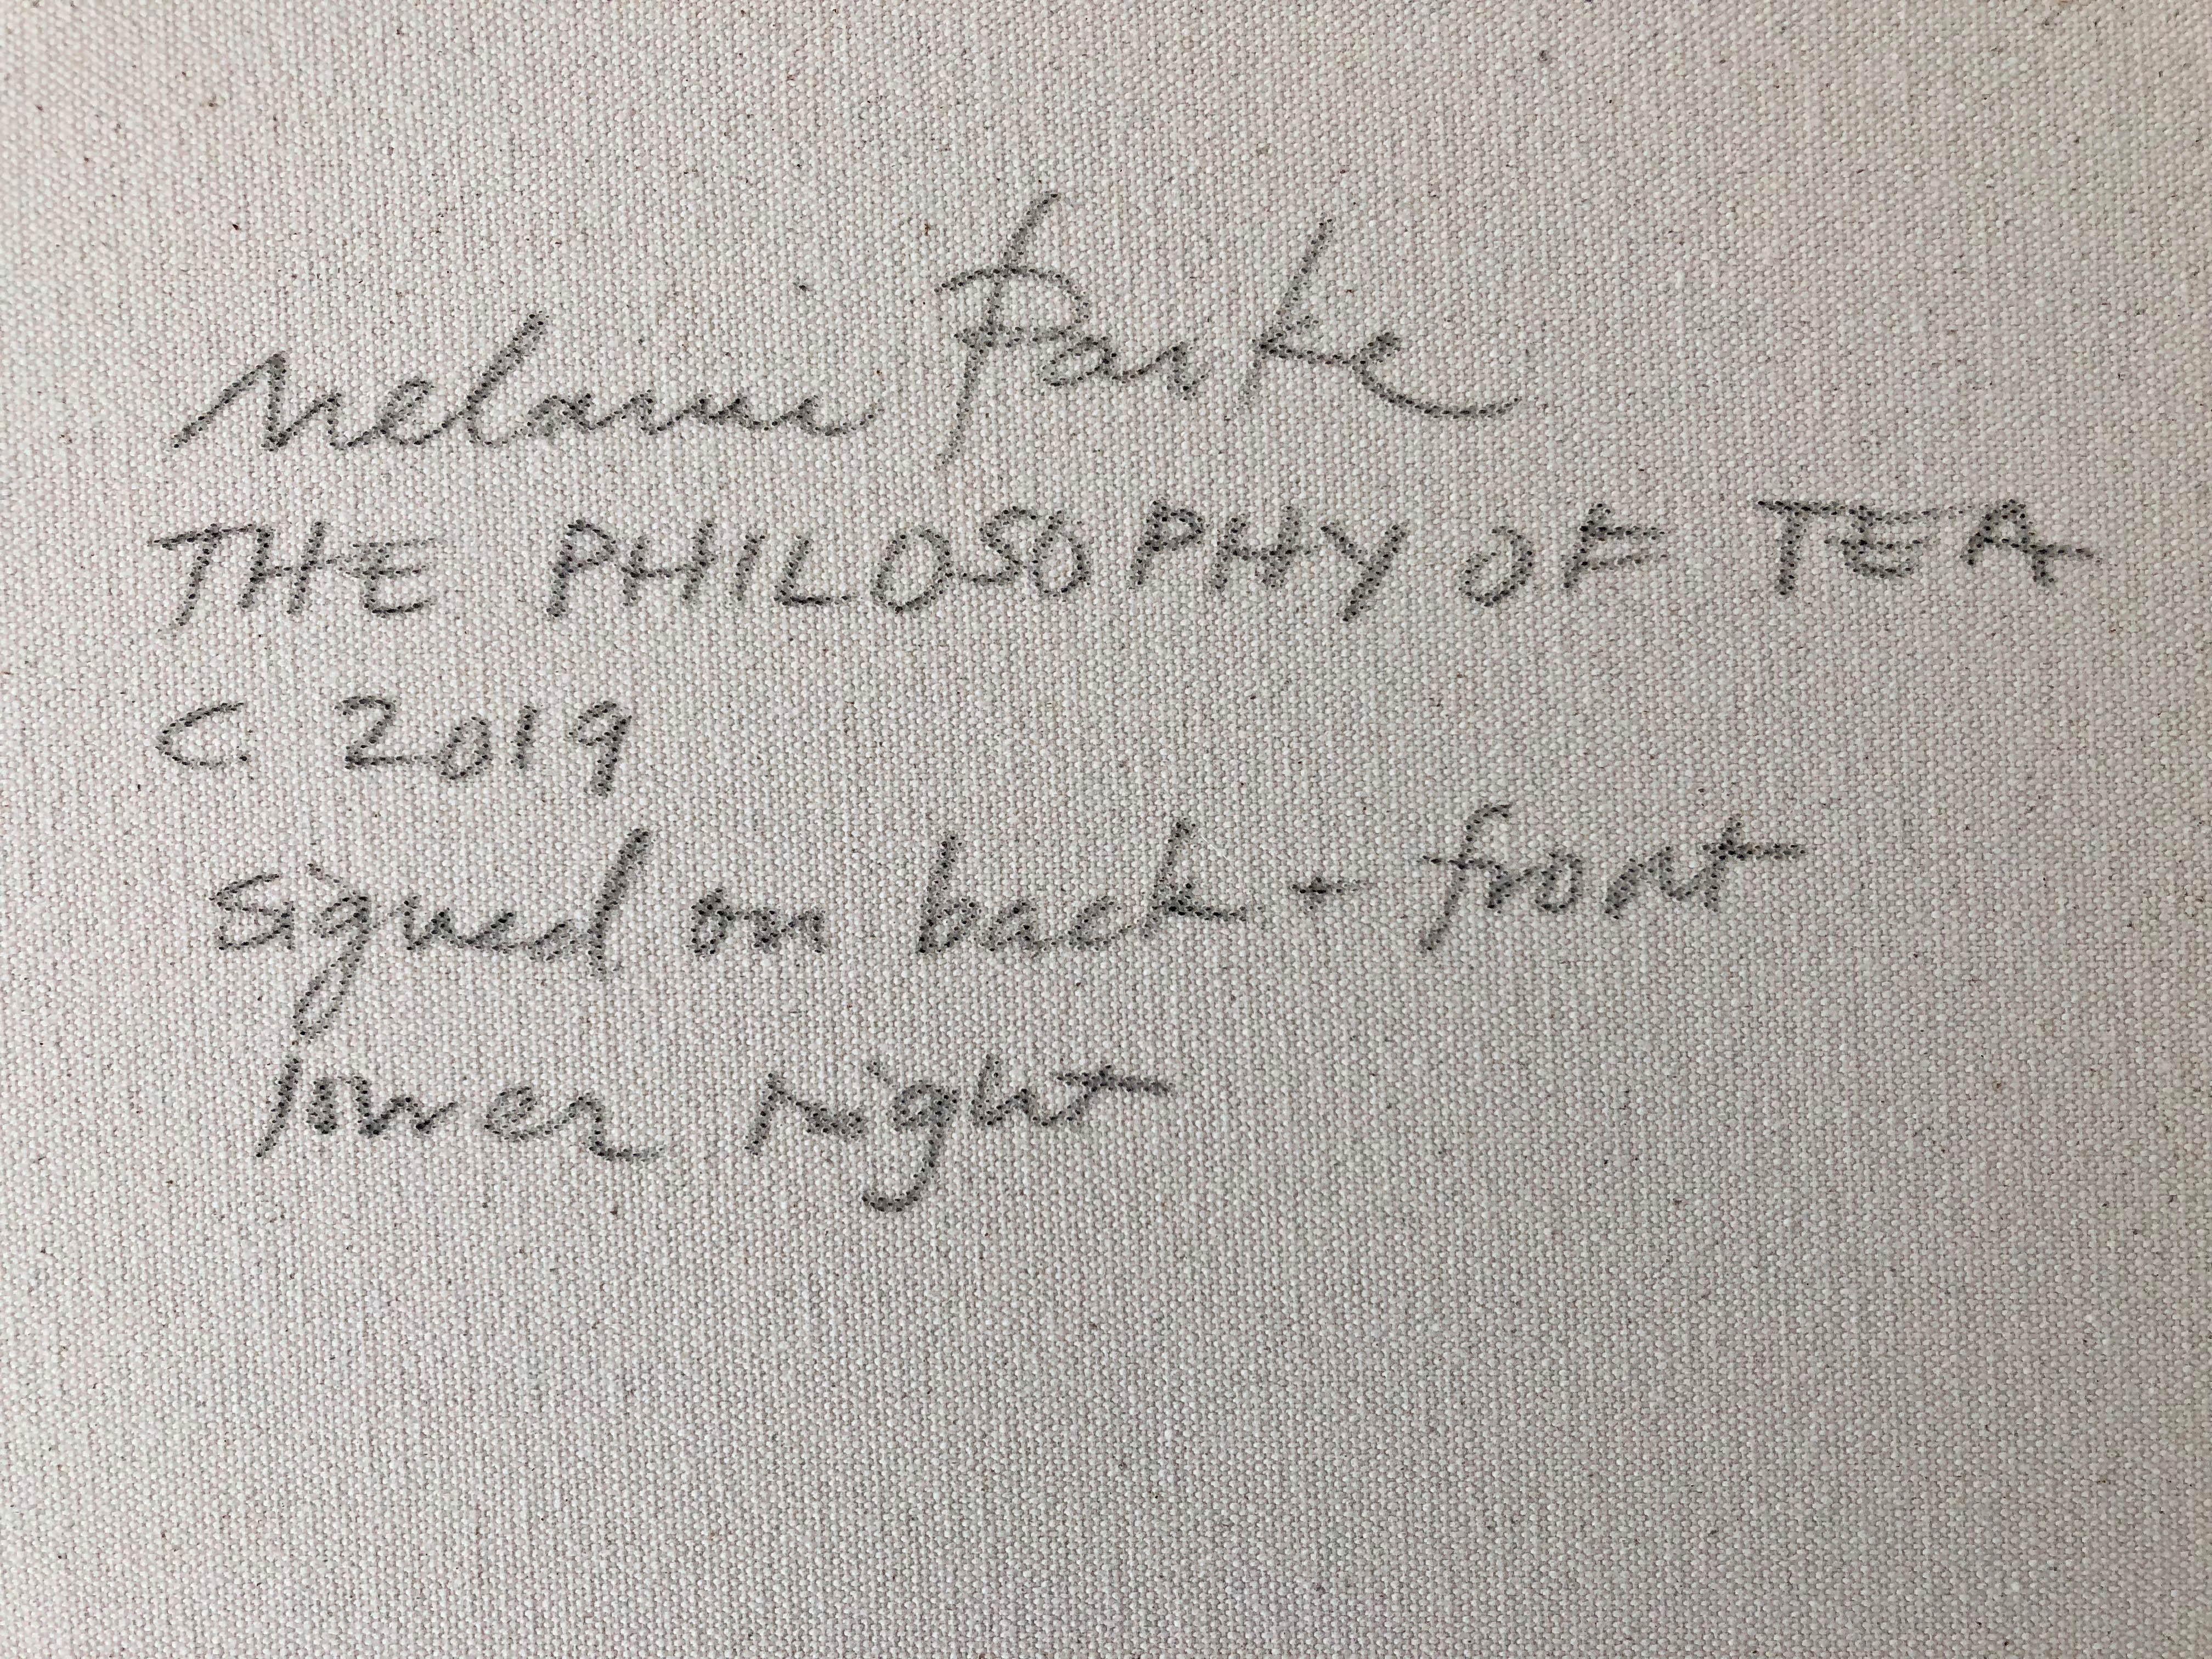 Melanie Parke
THE PHILOSOPHY OF TEA
C. 2019
signed on back + front
lower right